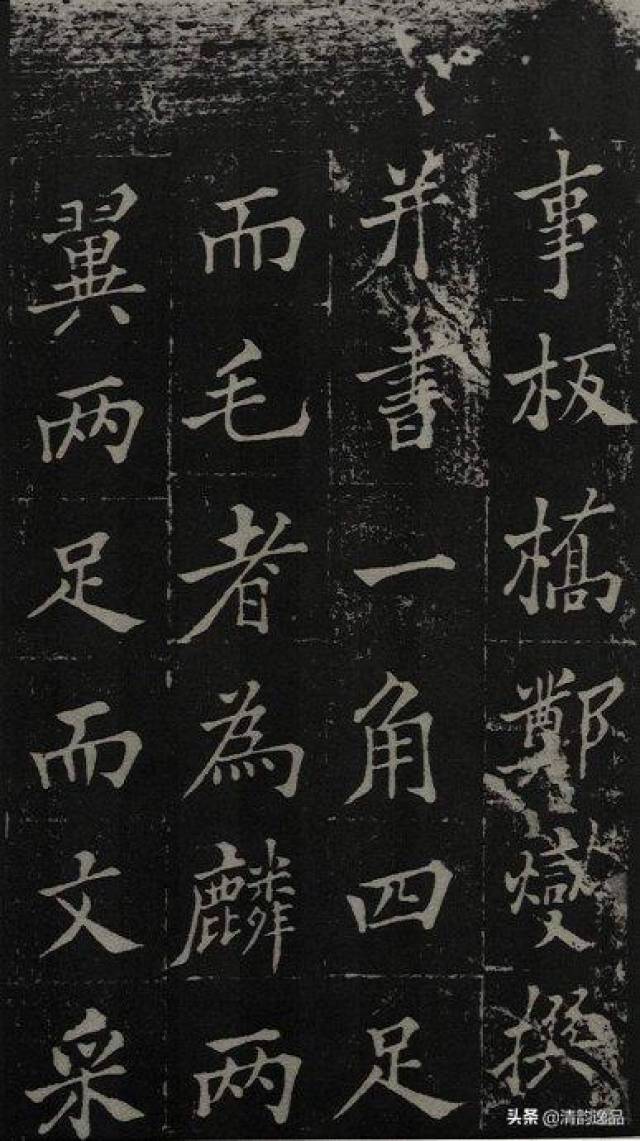 事板橋鄭燮撰
并書一角四足
而毛者為麟两
翼两足而文采
头条 @清韵逸品